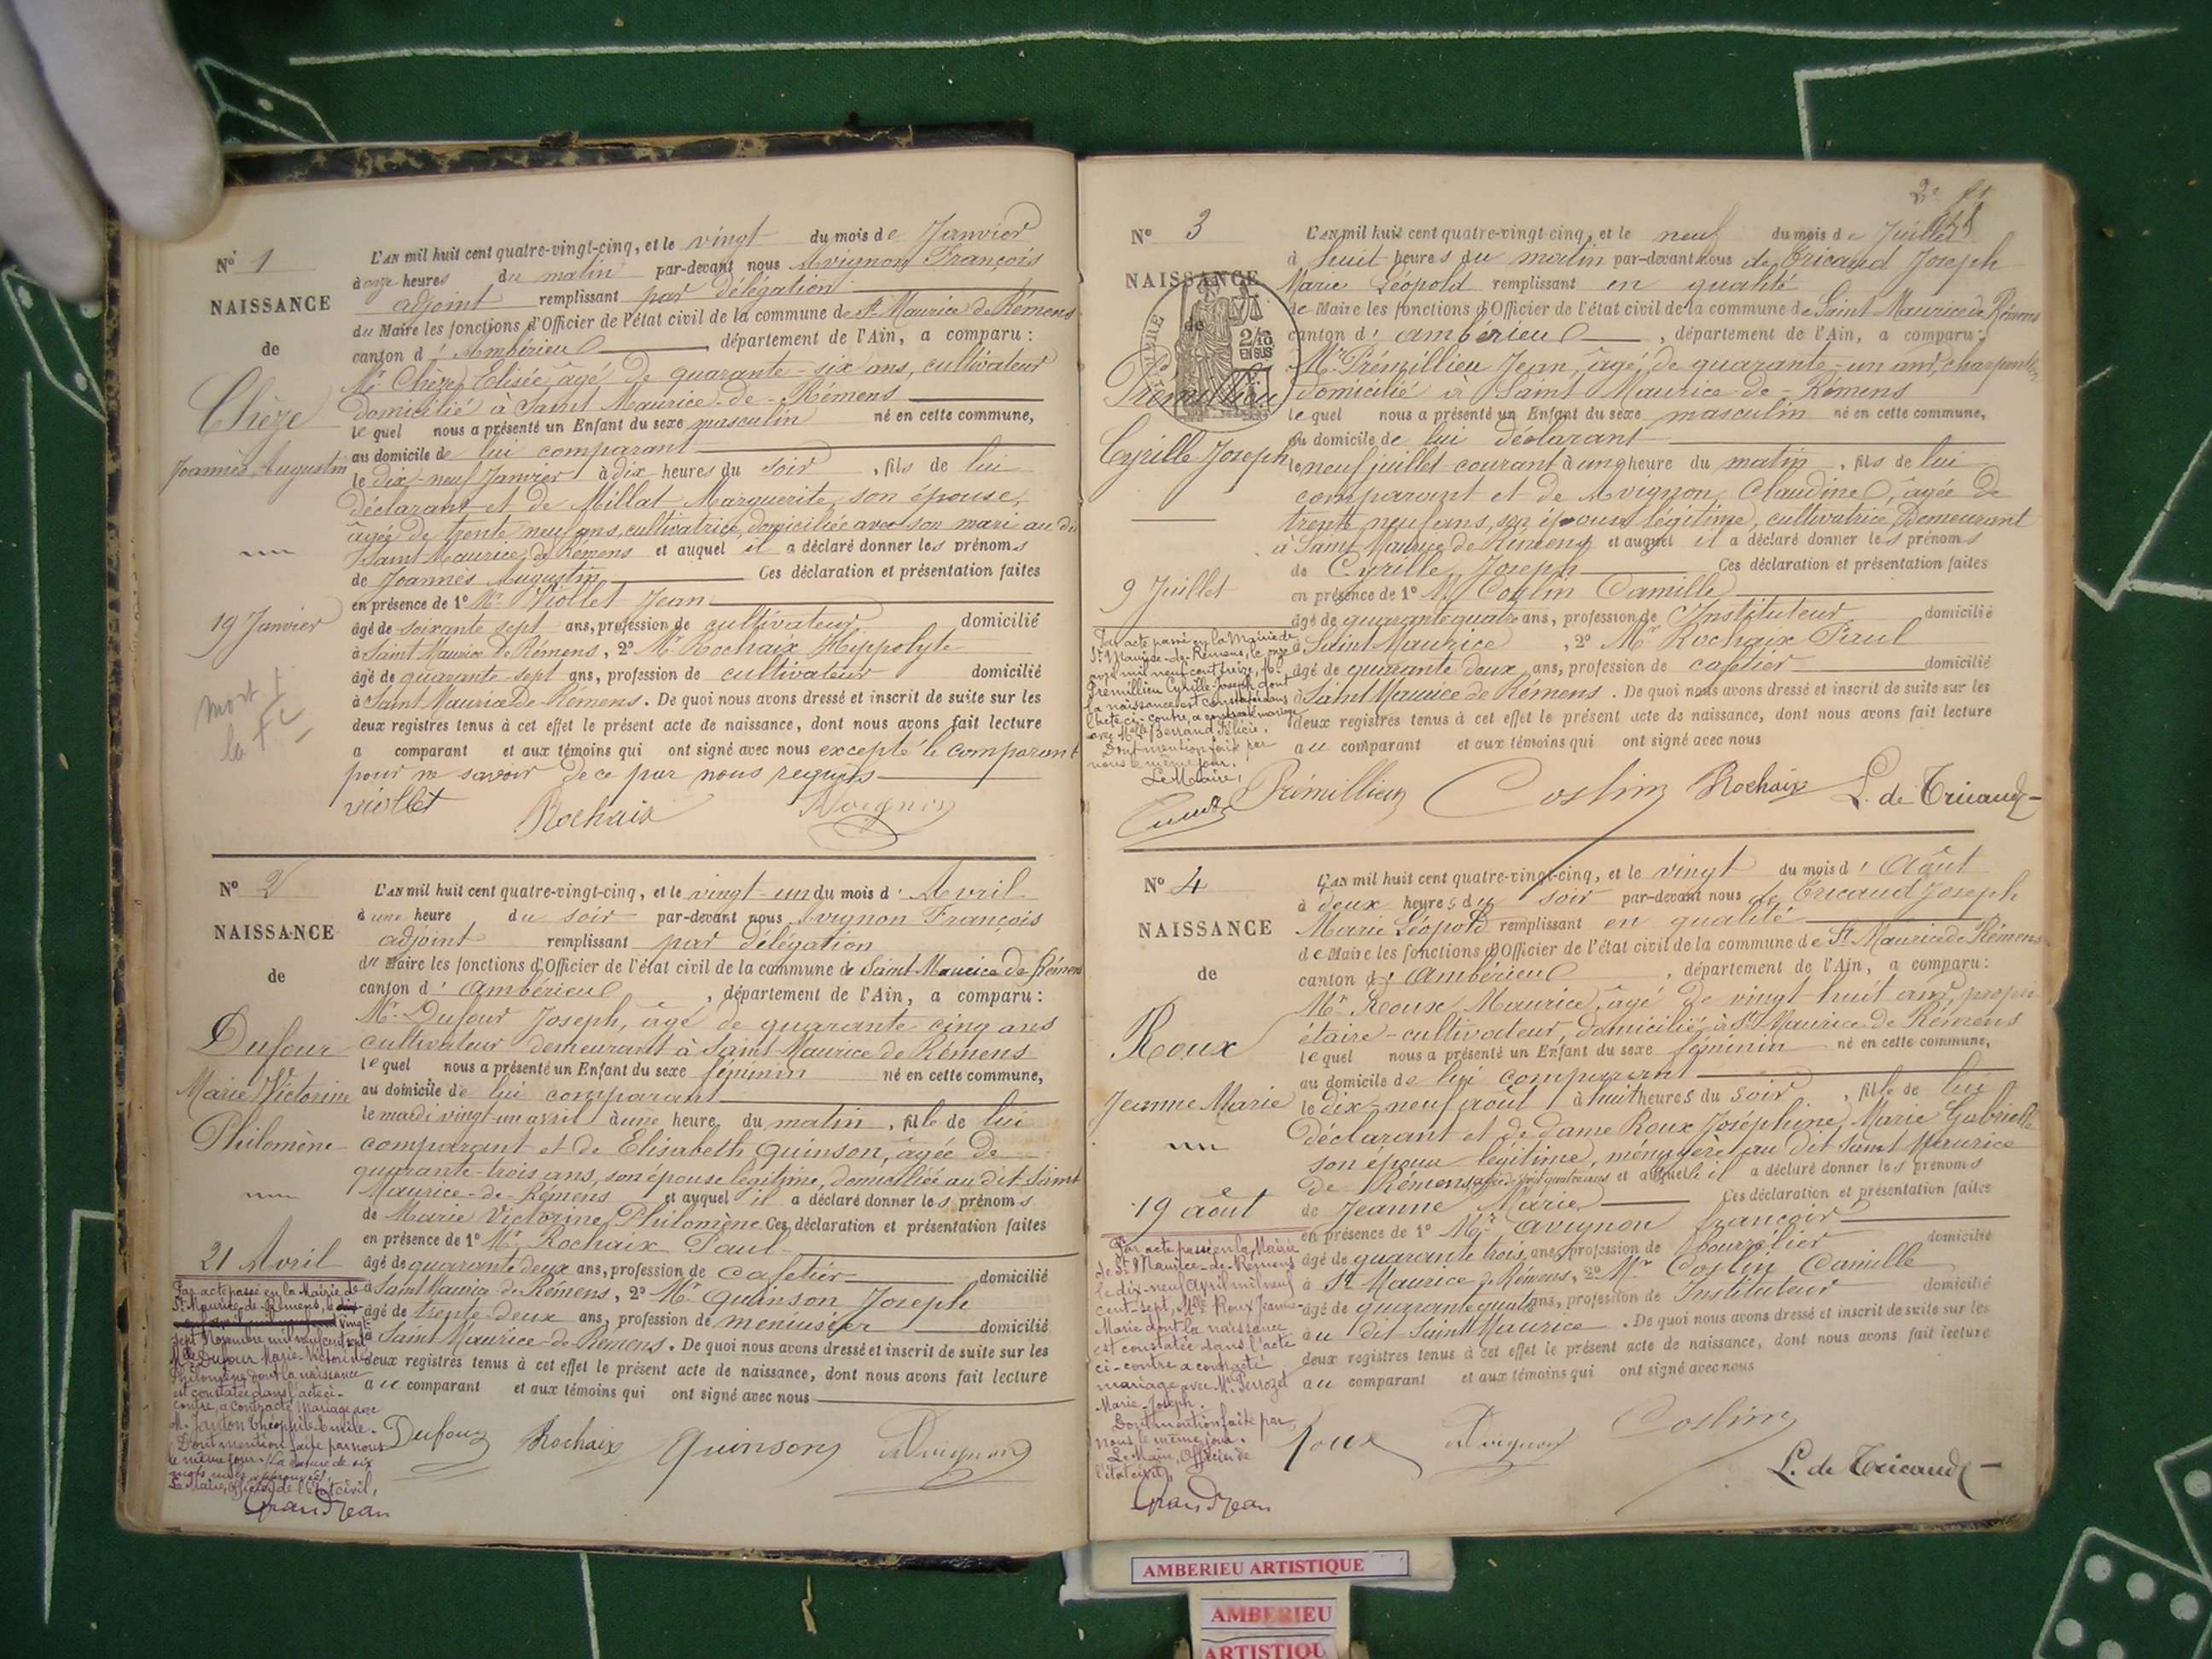 N° 1
NAISSANCE
de
Chèze
Joannès Augustin
19 Janvier
mort
L'AN mil huit cent quatre-vingt-cinq, et le vingt du mois de Janvier
à onze heures du matin par-devant nous Avignon François
adjoint remplissant par délégation
du Maire les fonctions d'Officier de l'état civil de la commune de St Maurice de Rémens
canton d'Ambérieu, département de l'Ain, a comparu :
Mr Chèze Elisée, âgé de quarante-six ans, cultivateur
domicilié à Saint Maurice-de-Rémens
lequel nous a présenté un Enfant du sexe masculin né en cette commune,
au domicile de lui comparant
le dix-neuf Janvier à dix heures du soir, fils de lui
déclarant et de Millat Marguerite, son épouse,
âgée de trente neuf ans, cultivatrice, domiciliée avec son mari au dit
Saint-Maurice de Rémens et auquel il a déclaré donner les prénoms
de Joannès Augustin Ces déclaration et présentation faites
en présence de 1° Mr Viollet Jean
âgé de soixante sept ans, profession de cultivateur domicilié
à Saint Maurice de Rémens, 2° Mr Rochaix Hippolyte
âgé de quarante-sept ans, profession de cultivateur domicilié
à Saint Maurice De Rémens. De quoi nous avons dressé et inscrit de suite sur les
deux registres tenus à cet effet le présent acte de naissance, dont nous avons fait lecture
a comparant et aux témoins qui ont signé avec nous excepté le comparant
pour ne savoir de ce par nous requis
Viollet Rochaix Avignon
N° 2
NAISSANCE
de
Dufour
Marie Victorine
Philomène
21 Avril
Par acte passé en la Mairie de
St Maurice-de-Rémens, le
vingt
sept Novembre mil neuf cent
Mlle Dufour Marie-Victorine
Philomène dont la naissance
est constatée dans l'acte ci-
contre, a contracté mariage avec
M. Janton Théophile Emile.
Dont mention faite par nous
le même jour. La rature de six
mots nuls approuvée.
Le Maire, Officier de l'Etat civil,
Grandjean
L'AN mil huit cent quatre-vingt-cinq, et le vingt-un du mois d'Avril
à une heure du soir par-devant nous Avignon François
adjoint remplissant par délégation
du Maire les fonctions d'Officier de l'état civil de la commune de Saint Maurice de Rémens
canton d'Ambérieu, département de l'Ain, a comparu :
Mr Dufour Joseph, âgé de quarante cinq ans
cultivateur demeurant à Saint-Maurice de Rémens
lequel nous a présenté un Enfant du sexe féminin né en cette commune,
au domicile de lui comparant
le mardi vingt-un avril à une heure du matin, fille de lui
comparant et de Elisabeth Quinson, âgée de
quarante-trois ans, son épouse légitime, domiciliée au dit Saint
Maurice-de-Rémens et auquel il a déclaré donner les prénoms
de Marie Victorine Philomène Ces déclaration et présentation faites
en présence de 1° Mr Rochaix Paul
âgé de quarante deux ans, profession de cafetier domicilié
à Saint Maurice de Rémens, 2° Mr Quinson Joseph
âgé de trente-deux ans, profession de menuisier domicilié
à Saint Maurice-de-Rémens. De quoi nous avons dressé et inscrit de suite sur les
deux registres tenus à cet effet le présent acte de naissance, dont nous avons fait lecture
au comparant et aux témoins qui ont signé avec nous
Dufour Rochaix Quinson Avignon
N° 3
NAISSANCE
de
2/10
EN SUS
Prémillieu
Cyrille Joseph
9 Juillet
Par acte passé en la Mairie de
St Maurice-de-Rémens, le onze
mil neuf cent treize, Mr
Prémillieu Cyrille-Joseph dont
la naissance est constatée dans
l'acte ci-contre, a contracté mariage
avec Melle Berrand Félicie.
Dont mention faite par
nous le même jour.
Le Maire,
L'AN mil huit cent quatre-vingt-cinq, et le neuf du mois de Juillet
à huit heures du matin par-devant nous de Tricaud Joseph
Marie Léopold remplissant en qualité
de Maire les fonctions d'Officier de l'état civil de la commune de Saint Maurice de Rémens
canton d'Ambérieu, département de l'Ain, a comparu :
Mr Prémillieu Jean, âgé de quarante-un ans, charpentier
domicilié à Saint Maurice-de-Rémens
lequel nous a présenté un Enfant du sexe masculin né en cette commune,
au domicile de lui déclarant
le neuf juillet courant à une heure du matin, fils de lui
comparant et de Avignon Claudine, âgée de
trente neuf ans, son épouse légitime, cultivatrice, demeurant
à Saint Maurice de Rémens et auquel il a déclaré donner les prénoms
de Cyrille Joseph Ces déclaration et présentation faites
en présence de 1° Mr Coslin Camille
âgé de quarante quatre ans, profession de Instituteur domicilié
à Saint Maurice, 2° Mr Rochaix Paul
âgé de quarante deux ans, profession de cafetier domicilié
à Saint Maurice de Rémens. De quoi nous avons dressé et inscrit de suite sur les
deux registres tenus à cet effet le présent acte de naissance, dont nous avons fait lecture
au comparant et aux témoins qui ont signé avec nous
Prémillieu Coslin Rochaix L. de Tricaud
N° 4
NAISSANCE
de
Roux
Jeanne Marie
19 août
Par acte passé en la Mairie
de St Maurice-de-Rémens
le dix-neuf Avril mil neuf
cent-sept, Melle Roux Jeanne-
Marie dont la naissance
est constatée dans l'acte
ci-contre a contracté
mariage avec Mr Perrozet
Marie-Joseph.
Dont mention faite par
nous le même jour.
Le Maire, Officier de
l'état civil,
Grandjean
L'AN mil huit cent quatre-vingt-cinq, et le vingt du mois d'Août
à deux heures du soir par-devant nous de Tricaud Joseph
Marie Léopold remplissant en qualité
de Maire les fonctions d'Officier de l'état civil de la commune de St Maurice de Rémens
canton d'Ambérieu, département de l'Ain, a comparu :
Mr Roux Maurice, âgé de vingt huit ans, propri
étaire-cultivateur, domicilié à St Maurice de Rémens
lequel nous a présenté un Enfant du sexe féminin né en cette commune,
au domicile de lui comparant
le dix-neuf août à huit heures du soir, fille de lui
déclarant et de dame Roux Joséphine, Marie Gabrielle
son épouse légitime, ménagère au dit Saint Maurice
de Rémens, âgée de vingt quatre ans et à laquelle il a déclaré donner les prénoms
de Jeanne Marie Ces déclaration et présentation faites
en présence de 1° Mr Avignon François
âgé de quarante trois ans, profession de bourrelier domicilié
à St Maurice de Rémens, 2° Mr Coslin Camille
âgé de quarante quatre ans, profession de Instituteur domicilié
au dit Saint Maurice. De quoi nous avons dressé et inscrit de suite sur les
deux registres tenus à cet effet le présent acte de naissance, dont nous avons fait lecture
au comparant et aux témoins qui ont signé avec nous
Roux Avignon Coslin
L. de Tricaud
AMBERIEU ARTISTIQUE
AMBERIEU
ARTISTIQU